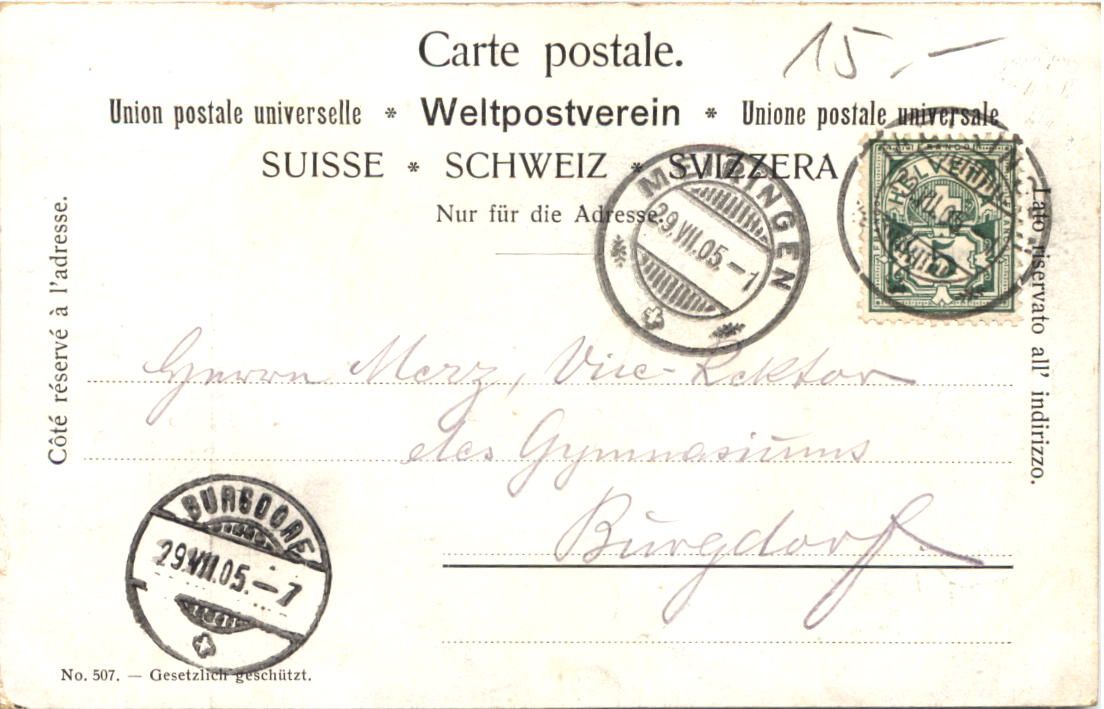 Carte postale.
15.—
Union postale universelle * Weltpostverein * Unione postale universale
SUISSE * SCHWEIZ * SVIZZERA
Nur für die Adresse.
MEIRINGEN
29.VII.05.—7
HELVETIA
5
Côté réservé à l'adresse.
Lato riservato all' indirizzo.
Herrn Merz, Vice-Rektor
des Gymnasiums
Burgdorf
BURGDORF
29.VII.05.—7
No. 507. — Gesetzlich geschützt.